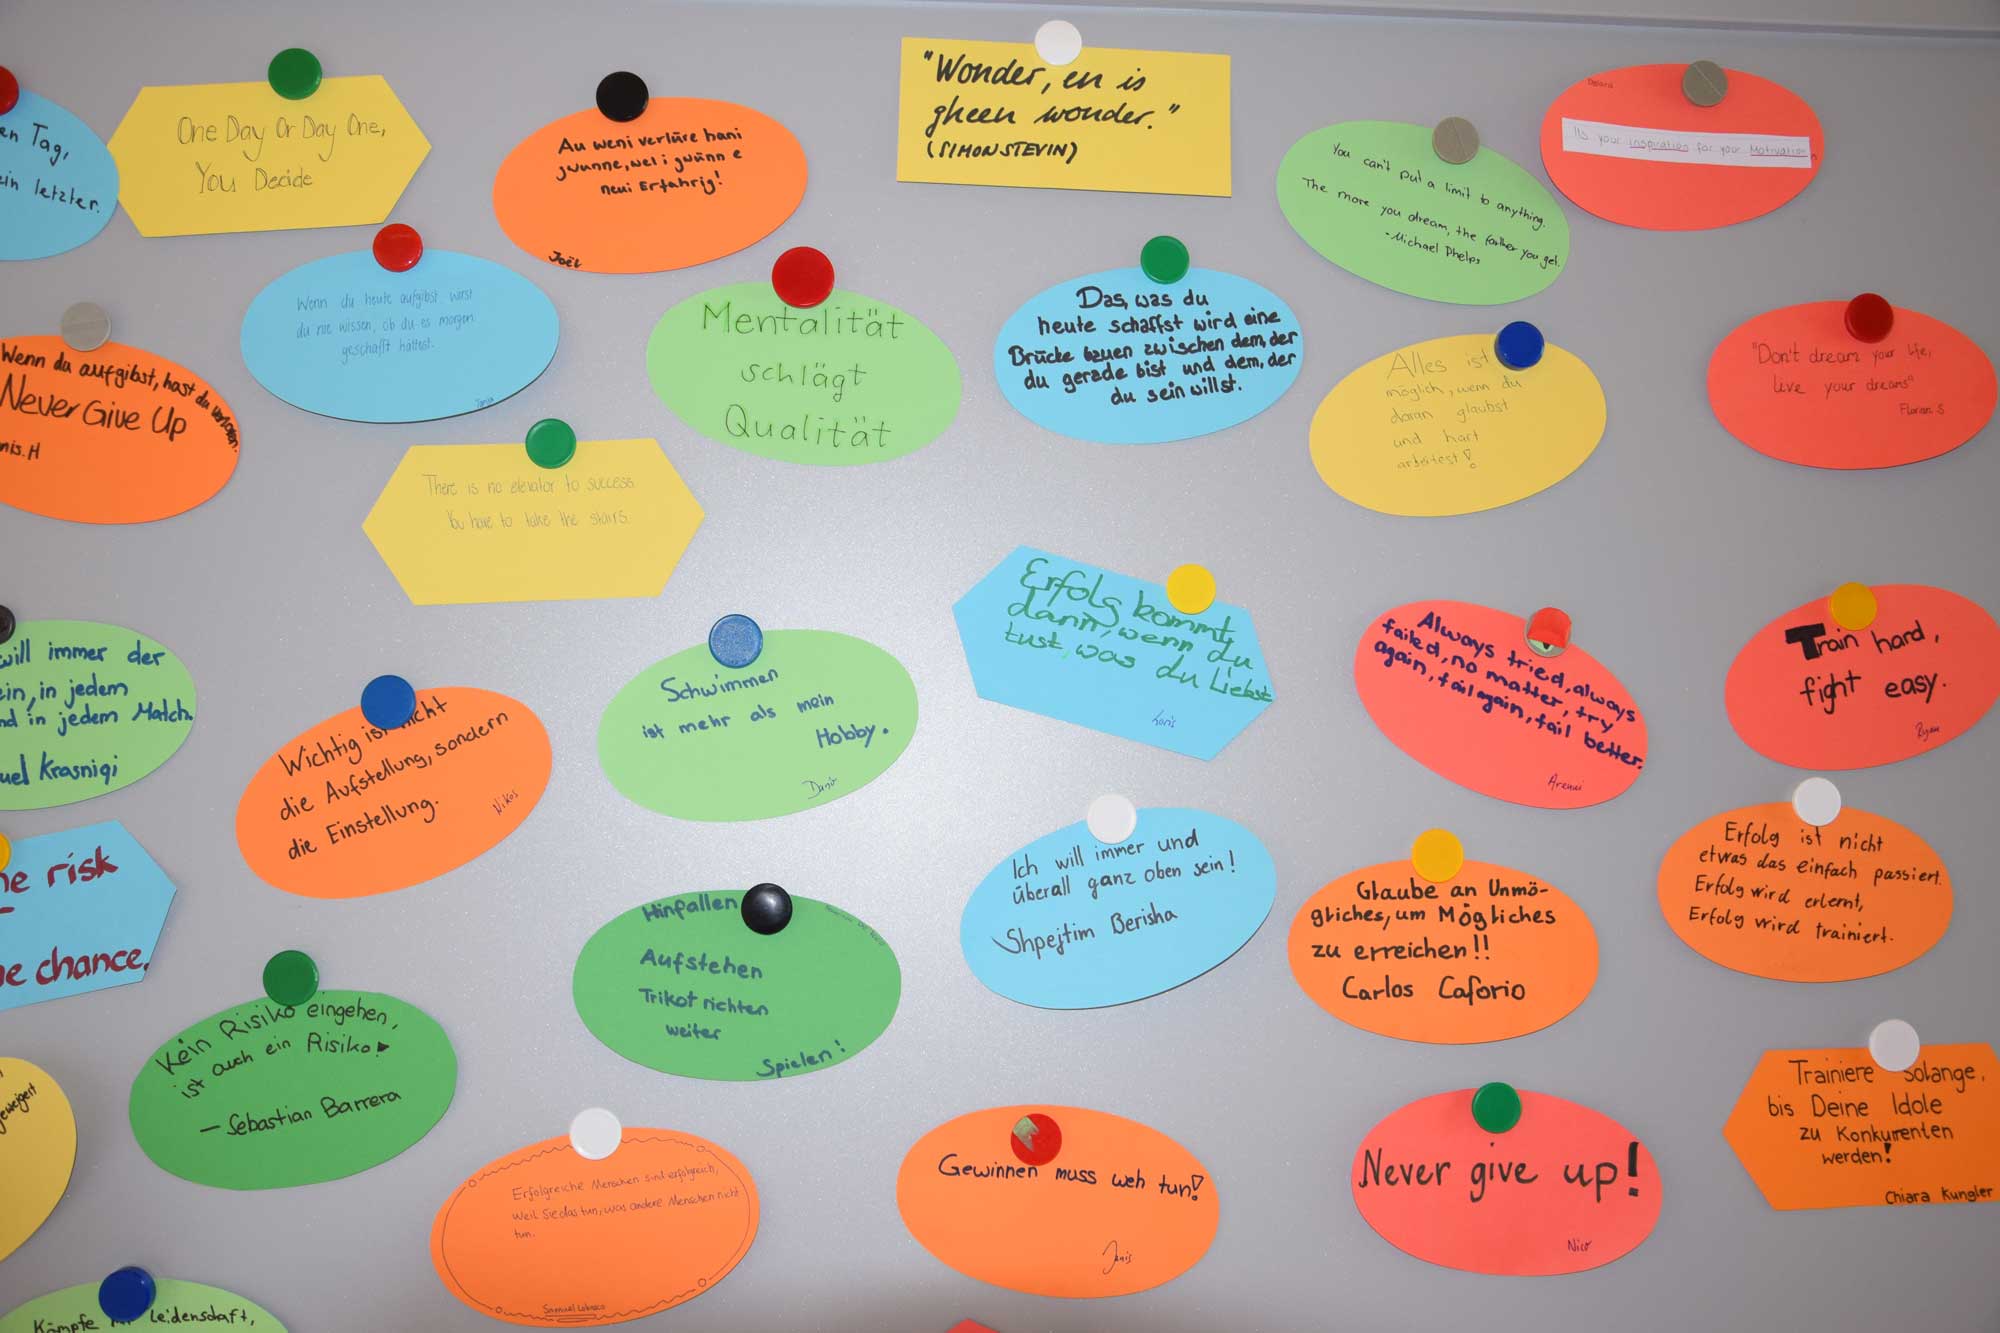 en Tag,
ein letzter.
One Day Or Day One,
You Decide
Au weni verlüre hani
gwunne, wel i gwünn e
neui Erfahrig!
Joël
"Wonder, en is
gheen wonder."
(SIMON STEVIN)
You can't put a limit to anything.
The more you dream, the farther you get.
-Michael Phelps
Delara
its your inspiration for your Motivation
Wenn du aufgibst, hast du verloren.
Never Give Up
nis.H
Wenn du heute aufgibst, wirst
du nie wissen, ob du es morgen
geschafft hättest.
Mentalität
schlägt
Qualität
Das, was du
heute schaffst wird eine
Brücke bauen zwischen dem, der
du gerade bist und dem, der
du sein willst.
Alles ist
möglich, wenn du
daran glaubst
und hart
arbeitest!
"Don't dream your life,
live your dreams"
Florian S
There is no elevator to success.
You have to take the stairs.
will immer der
ein, in jedem
nd in jedem Match.
uel Krasniqi
Wichtig ist nicht
die Aufstellung, sondern
die Einstellung.
Nikos
Schwimmen
ist mehr als mein
Hobby.
Erfolg kommt
dann, wenn du
tust, was du liebst
Loris
Always tried, always
failed, no matter, try
again, fail again, fail better.
Train hard,
fight easy.
Ryan
he risk
he chance.
Kein Risiko eingehen,
ist auch ein Risiko!
- Sebastian Barrera
Hinfallen
Aufstehen
Trikot richten
weiter
Spielen!
Ich will immer und
überall ganz oben sein!
Shpejtim Berisha
Glaube an Unmö-
gliches, um Mögliches
zu erreichen!!
Carlos Caforio
Erfolg ist nicht
etwas das einfach passiert.
Erfolg wird erlernt,
Erfolg wird trainiert.
geweigert
Erfolgreiche Menschen sind erfolgreich,
weil Sie das tun, was andere Menschen nicht
tun.
Gewinnen muss weh tun!
Janis
Never give up!
Nico
Trainiere solange,
bis Deine Idole
zu Konkurrenten
werden!
Chiara Kungler
Kämpfe Leidenschaft,